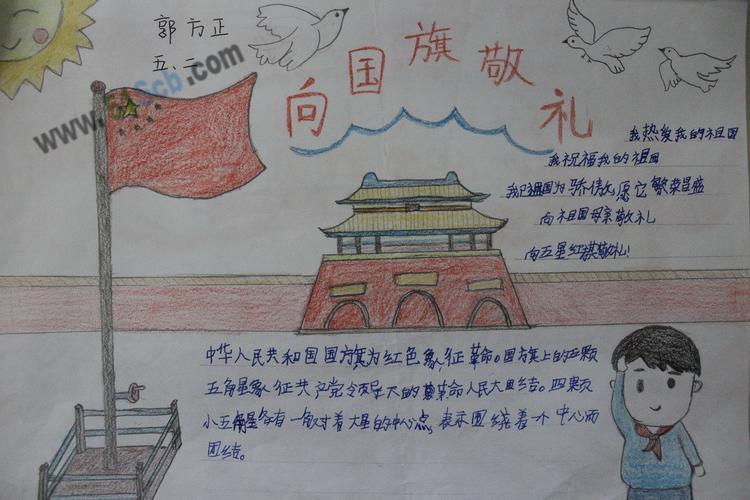 郭方正
五、二
向国旗敬礼
我热爱我的祖国
我祝福我的祖国
我已祖国为骄傲,愿它繁荣昌盛
向祖国母亲敬礼
向五星红旗敬礼!
中华人民共和国国旗为红色象征革命。国旗上的五颗
五角星象征共产党领导的革命人民大团结。四颗
小五角星各有一角对着大星的中心点,表示围绕着一个中心而
团结。